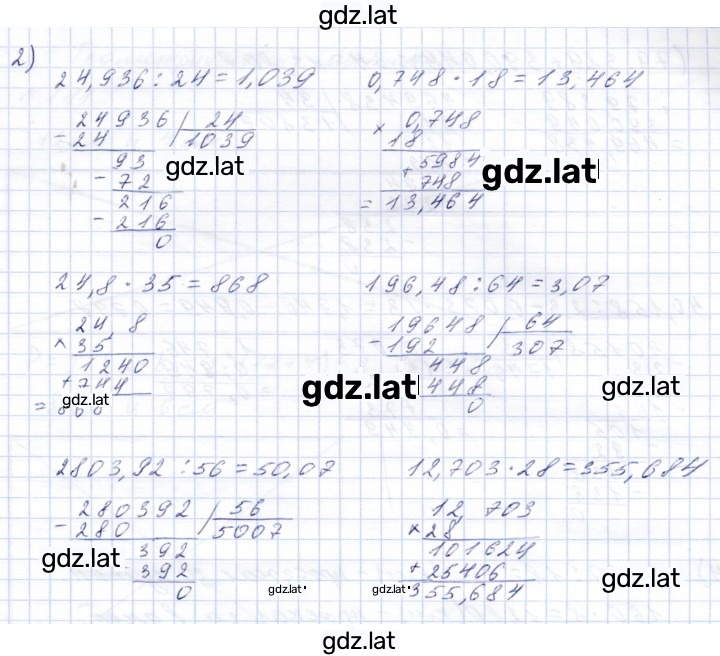 gdz.lat
2)
24,936 : 24 = 1,039
0,748 · 18 = 13,464
24936 | 24
- 24 | 1039
93
- 72
216
- 216
0
gdz.lat
0,748
× 18
5984
+ 748
= 13,464
gdz.lat
24,8 · 35 = 868
196,48 : 64 = 3,07
24,8
× 35
1240
+ 744
= 868
gdz.lat
gdz.lat
19648 | 64
- 192 | 307
448
448
0
gdz.lat
2803,92 : 56 = 50,07
12,703 · 28 = 355,684
280392 | 56
- 280 | 5007
392
392
0
gdz.lat
gdz.lat
12,703
× 28
101624
+ 25406
355,684
gdz.lat
gdz.lat
gdz.lat